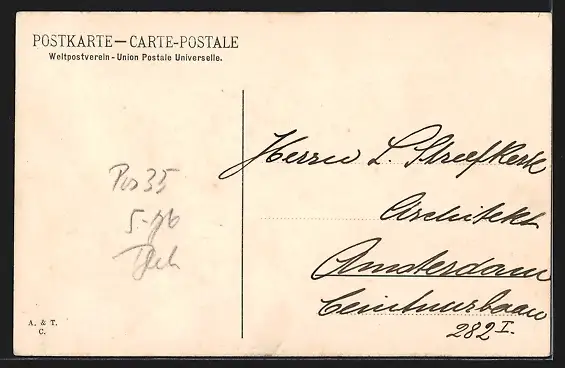 POSTKARTE—CARTE-POSTALE
Weltpostverein - Union Postale Universelle.
Herrn L. Streefkerk
Architekt
Amsterdam
Ceintuurbaan
282 I.
Pos 35
A. & T.
C.